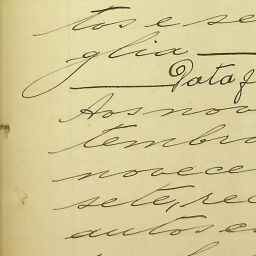 tos e se
glia
Data f
Aos nov
tembro
novece
sete, rec
autos c